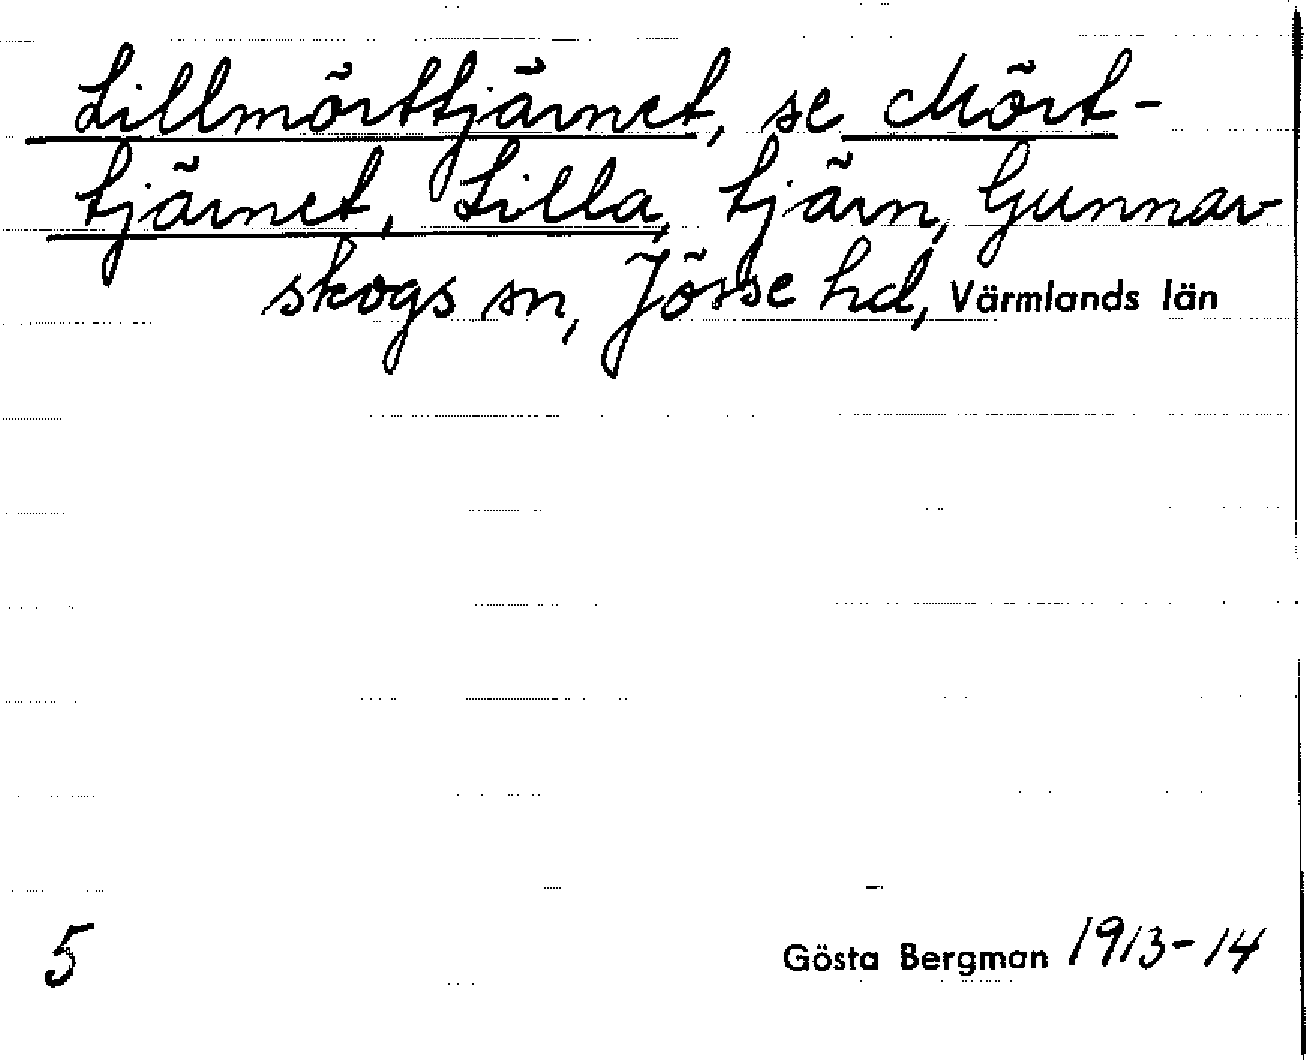 Lillmörttjärnet, se Mört-
tjärnet, Lilla, tjärn, Gunnar
skogs sn, Jösse hd, Värmlands län
5 Gösta Bergman 1913-14